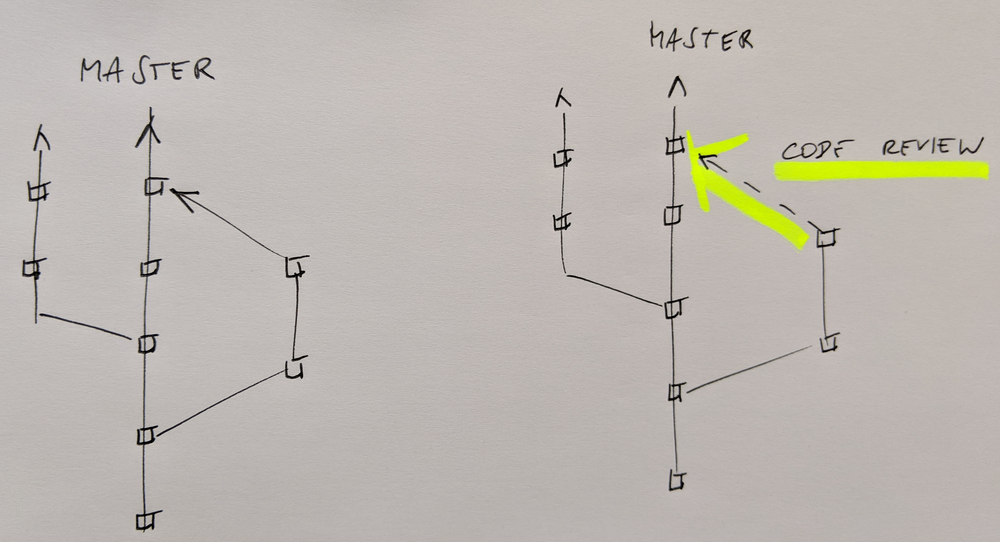 MASTER
MASTER
CODE REVIEW